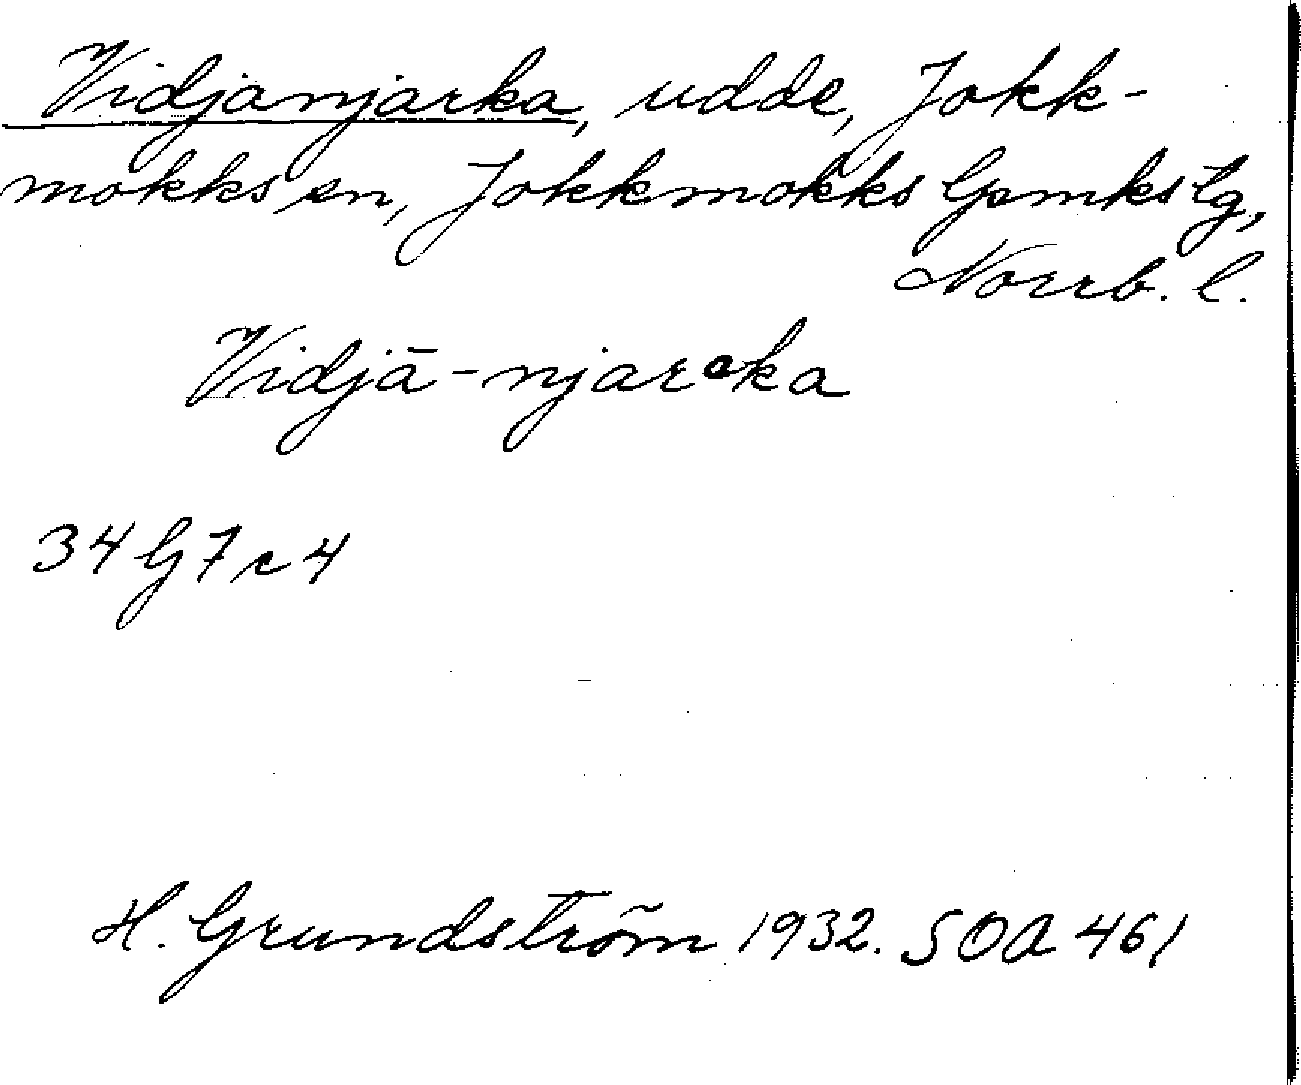 Vidjanjarka, udde, Jokk-
mokks sn, Jokkmokks lpmks tg,
Norrb. l.
Vidjā-njarᵊka
34 G 7 c 4
H. Grundström 1932. SOA 461